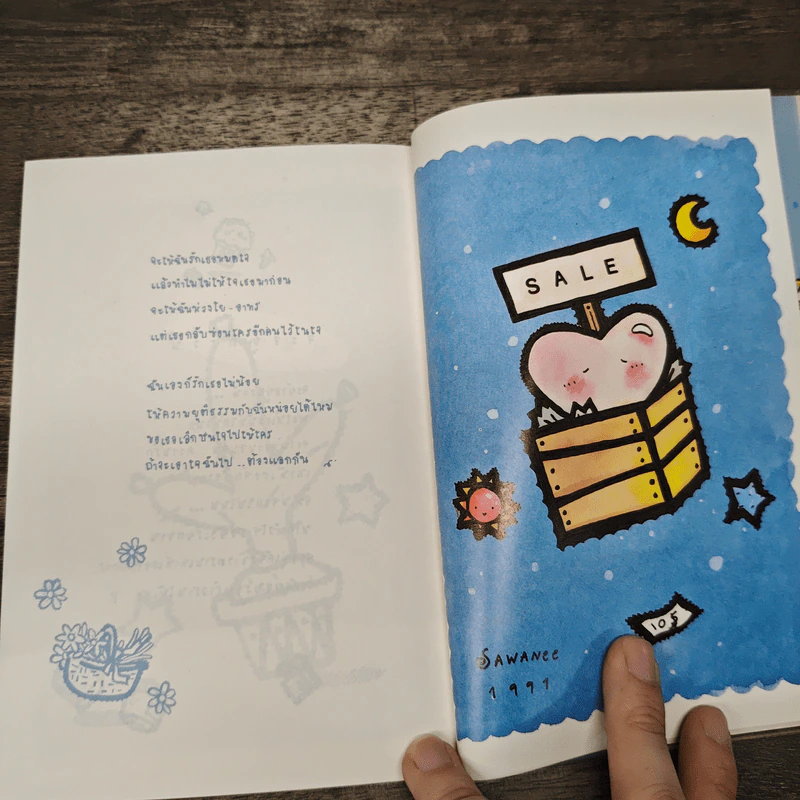 จะให้ฉันรักเธอหมดใจ
แล้วทำไมไม่ให้ใจเธอมาก่อน
จะให้ฉันห่วงใย - อาทร
แต่เธอกลับซ่อนใครอีกคนไว้ในใจ
ฉันเองก็รักเธอไม่น้อย
ให้ความยุติธรรมกับฉันหน่อยได้ไหม
ขอเธอเลิกซนใจไปให้ใคร
ถ้าจะเอาใจฉันไป ..ต้องแลกกัน
SALE
10$
SAWANEE
1991